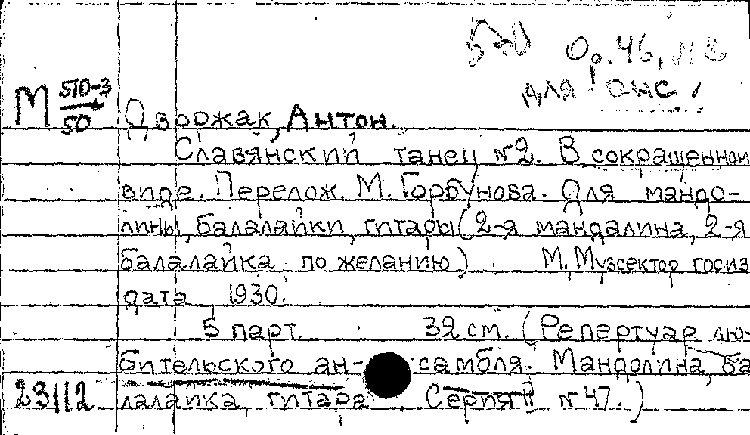 Op. 46, № 2
для анс.
М 510-3
50
Дворжак, Антон.
Славянский танец № 2. В сокращенном
виде. Перелож. М. Горбунова. Для мандо-
лины, балалайки, гитары (2-я мандалина, 2-я
балалайка по желанию) М, Музсектор госиз
дата 1930.
5 парт. 32 см. (Репертуар лю-
бительского ан- самбля. Мандолина, ба
лалайка, гитара. Серия II № 47.)
23112